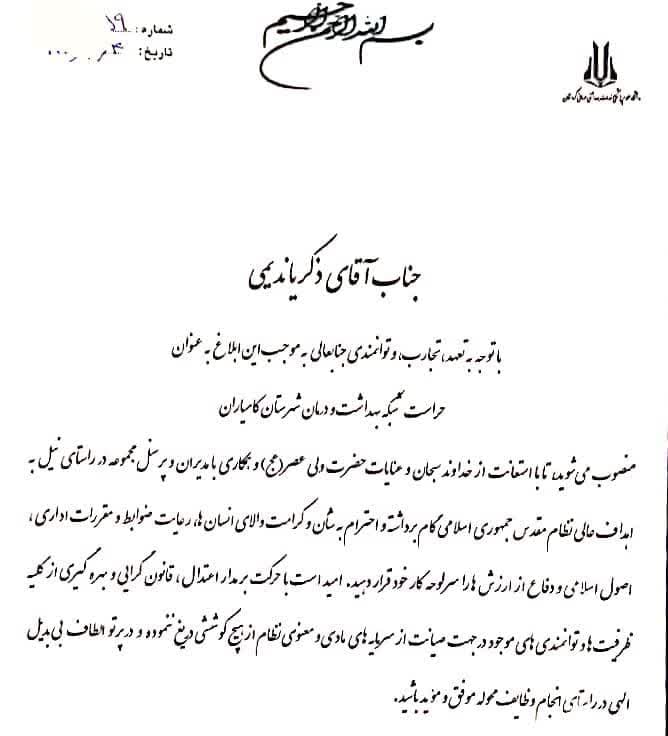 بسم الله الرحمن الرحیم
شماره: ۱۹
تاریخ:
جناب آقای ذکریا ندیمی
با توجه به تعهد، تجارب، و توانمندی جنابعالی به موجب این ابلاغ به عنوان
حراست شبکه بهداشت و درمان شهرستان کامیاران
منصوب می شوید، تا با استعانت از خداوند سبحان و عنایات حضرت ولی عصر(عج) و همکاری با مدیران و پرسنل مجموعه در راستای نیل به
اهداف عالی نظام مقدس جمهوری اسلامی گام برداشته و احترام به شأن و کرامت والای انسان ها، رعایت ضوابط و مقررات اداری ،
اصول اسلامی و دفاع از ارزش ها را سرلوحه کار خود قرار دهید. امید است با حرکت بر مدار اعتدال ، قانون گرایی و بهره گیری از کلیه
ظرفیت ها و توانمندی های موجود در جهت صیانت از سرمایه های مادی و معنوی نظام از هیچ کوششی دریغ ننموده و در پرتو الطاف بی بدیل
الهی در انجام وظایف محوله موفق و مؤید باشید.